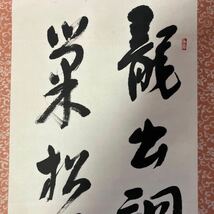 龍出洞
巣松